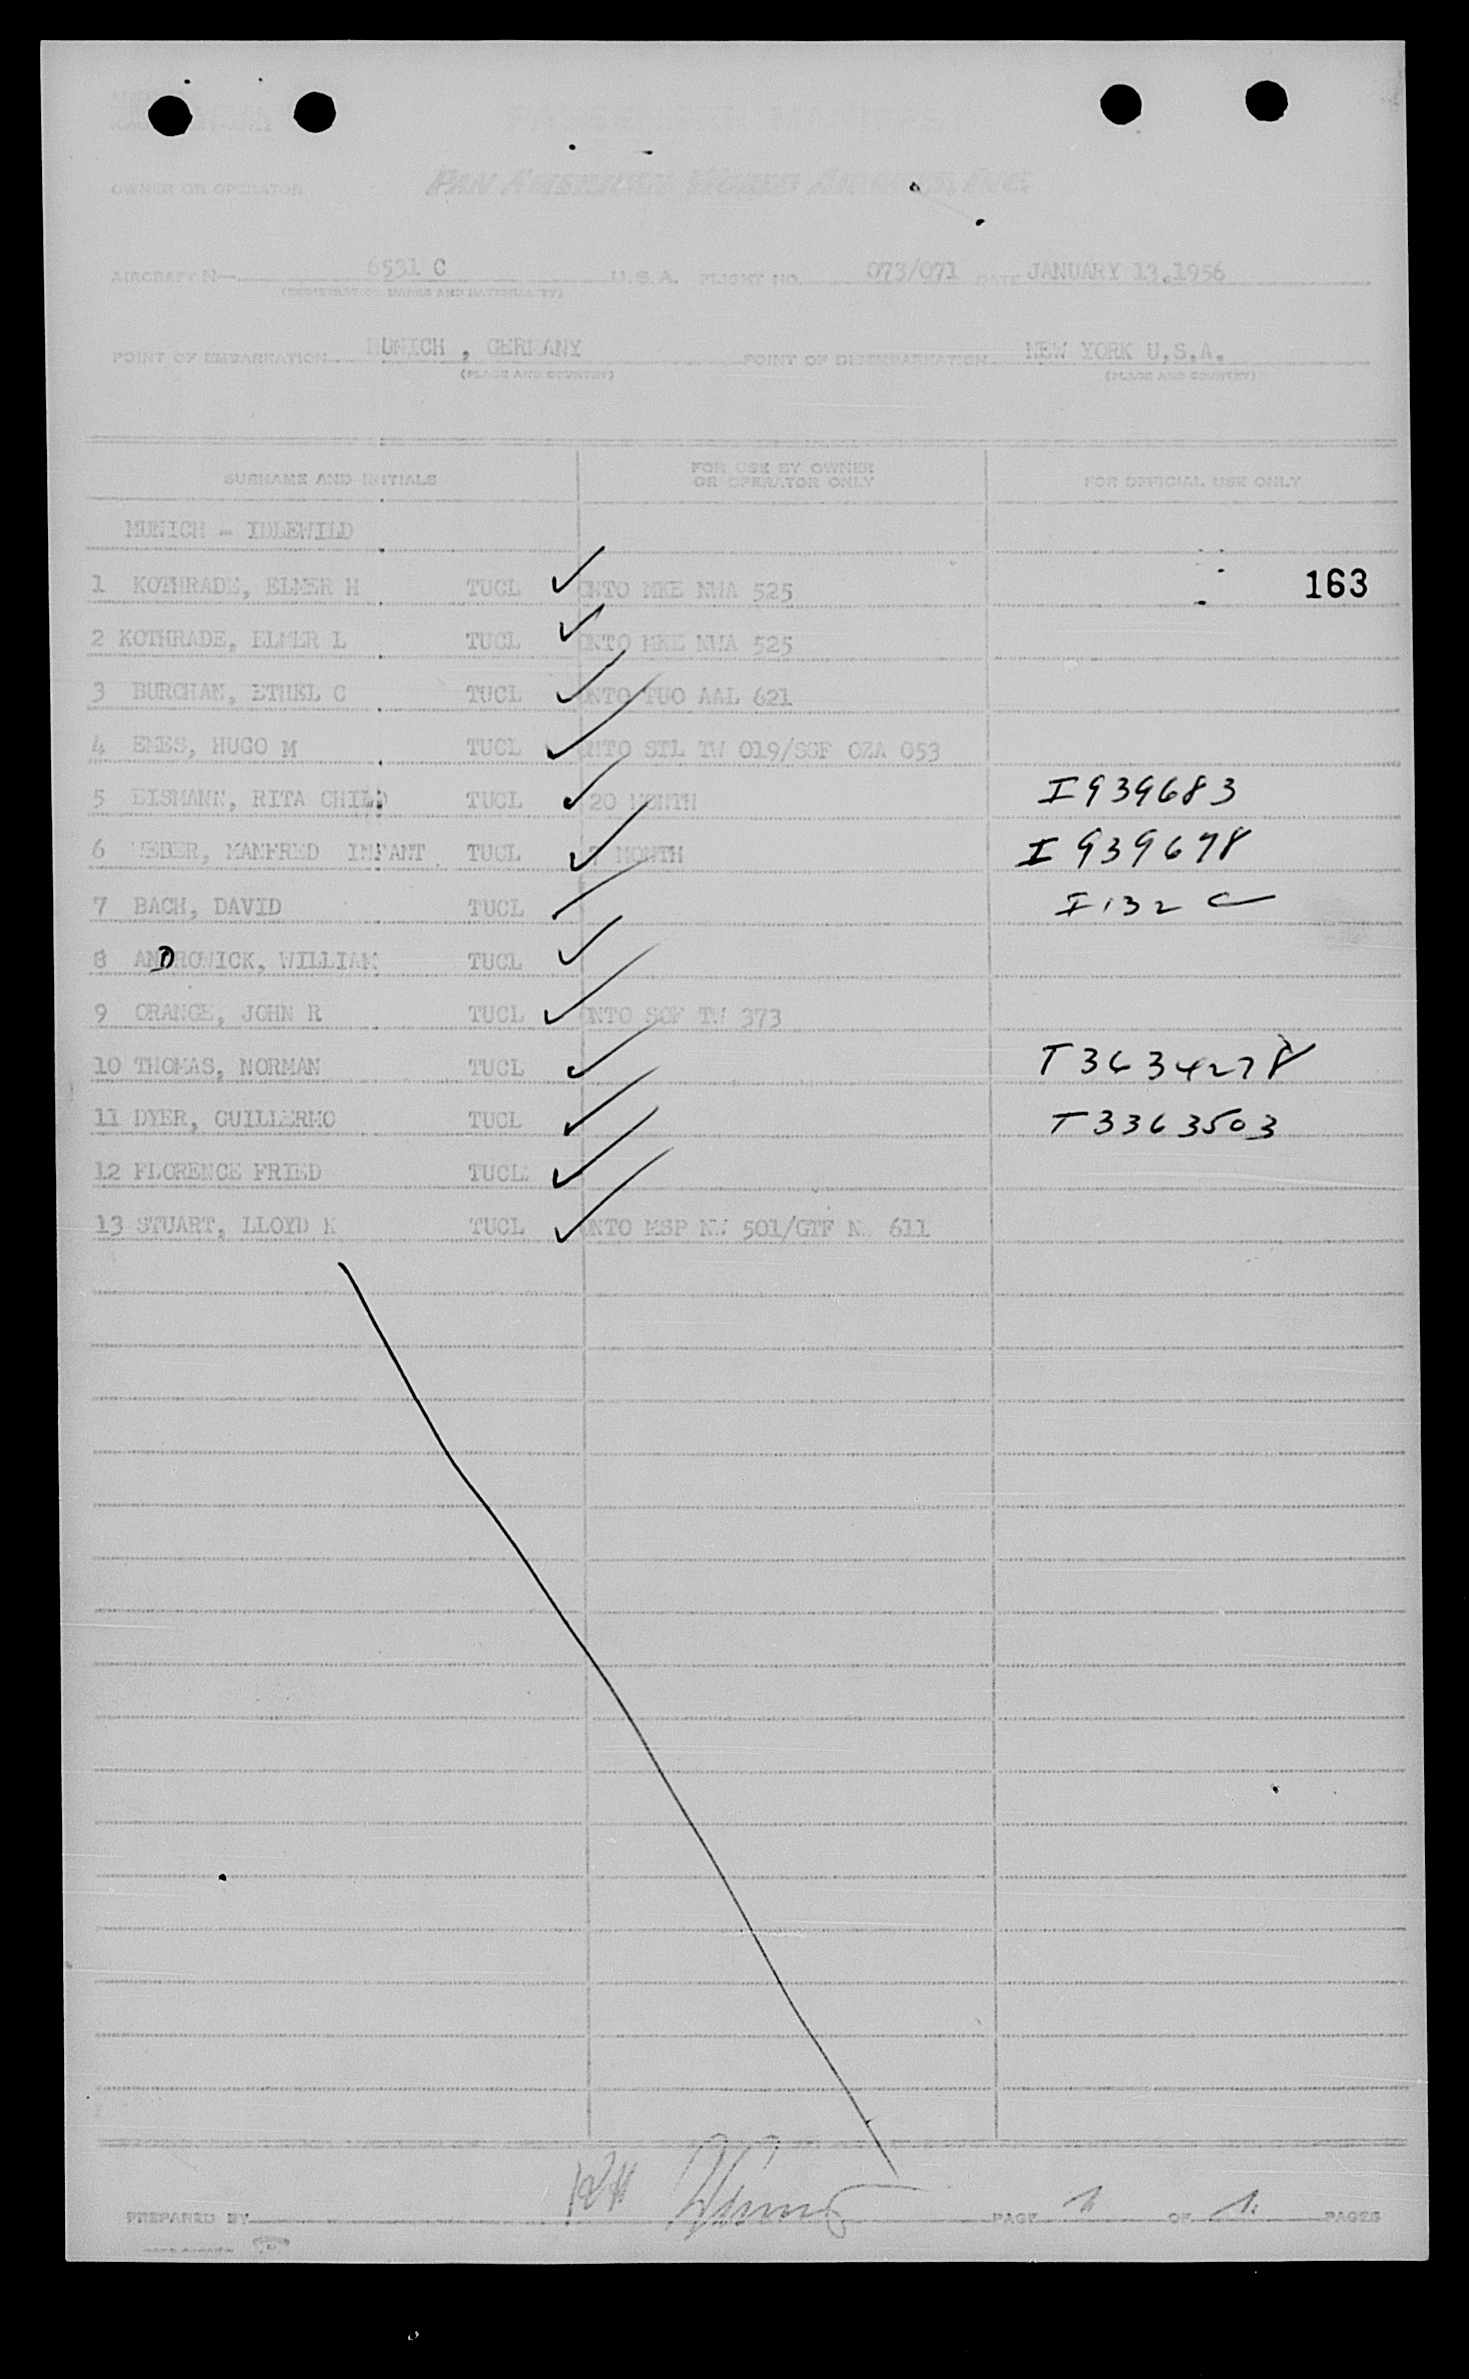 PASSENGER MANIFEST
OWNER OR OPERATOR PAN AMERICAN WORLD AIRWAYS, INC.
AIRCRAFT N— 6531 C U.S.A. FLIGHT NO. 073/071 DATE JANUARY 13,1956
(REGISTRATION MARKS AND NATIONALITY)
POINT OF EMBARKATION MUNICH , GERMANY POINT OF DISEMBARKATION NEW YORK U.S.A.
(PLACE AND COUNTRY) (PLACE AND COUNTRY)
SURNAME AND INITIALS FOR USE BY OWNER OR OPERATOR ONLY FOR OFFICIAL USE ONLY
MUNICH - IDLEWILD
1 KOTHRADE, ELMER H TUCL ✓ ONTO MKE NWA 525 163
2 KOTHRADE, ELMER L TUCL ✓ ONTO MKE NWA 525
3 BURCHAN, ETHEL C TUCL ✓ ONTO TUO AAL 621
4 EMES, HUGO M TUCL ✓ ONTO STL TW 019/SGF OZA 053
5 EISMANN, RITA CHILD TUCL ✓ 20 MONTH I939683
6 WEBER, MANFRED INFANT TUCL ✓ 7 MONTH I939678
7 BACH, DAVID TUCL I 132 C
8 ANDROWICK, WILLIAM TUCL ✓
9 ORANGE, JOHN R TUCL ✓ ONTO TW 373
10 THOMAS, NORMAN TUCL ✓ T3634278
11 DYER, GUILLERMO TUCL ✓ T3363503
12 FLORENCE FRIED TUCL ✓
13 STUART, LLOYD K TUCL ✓ ONTO MSP NW 501/GTF NW 611
PREPARED BY PAGE 1 OF 1 PAGES